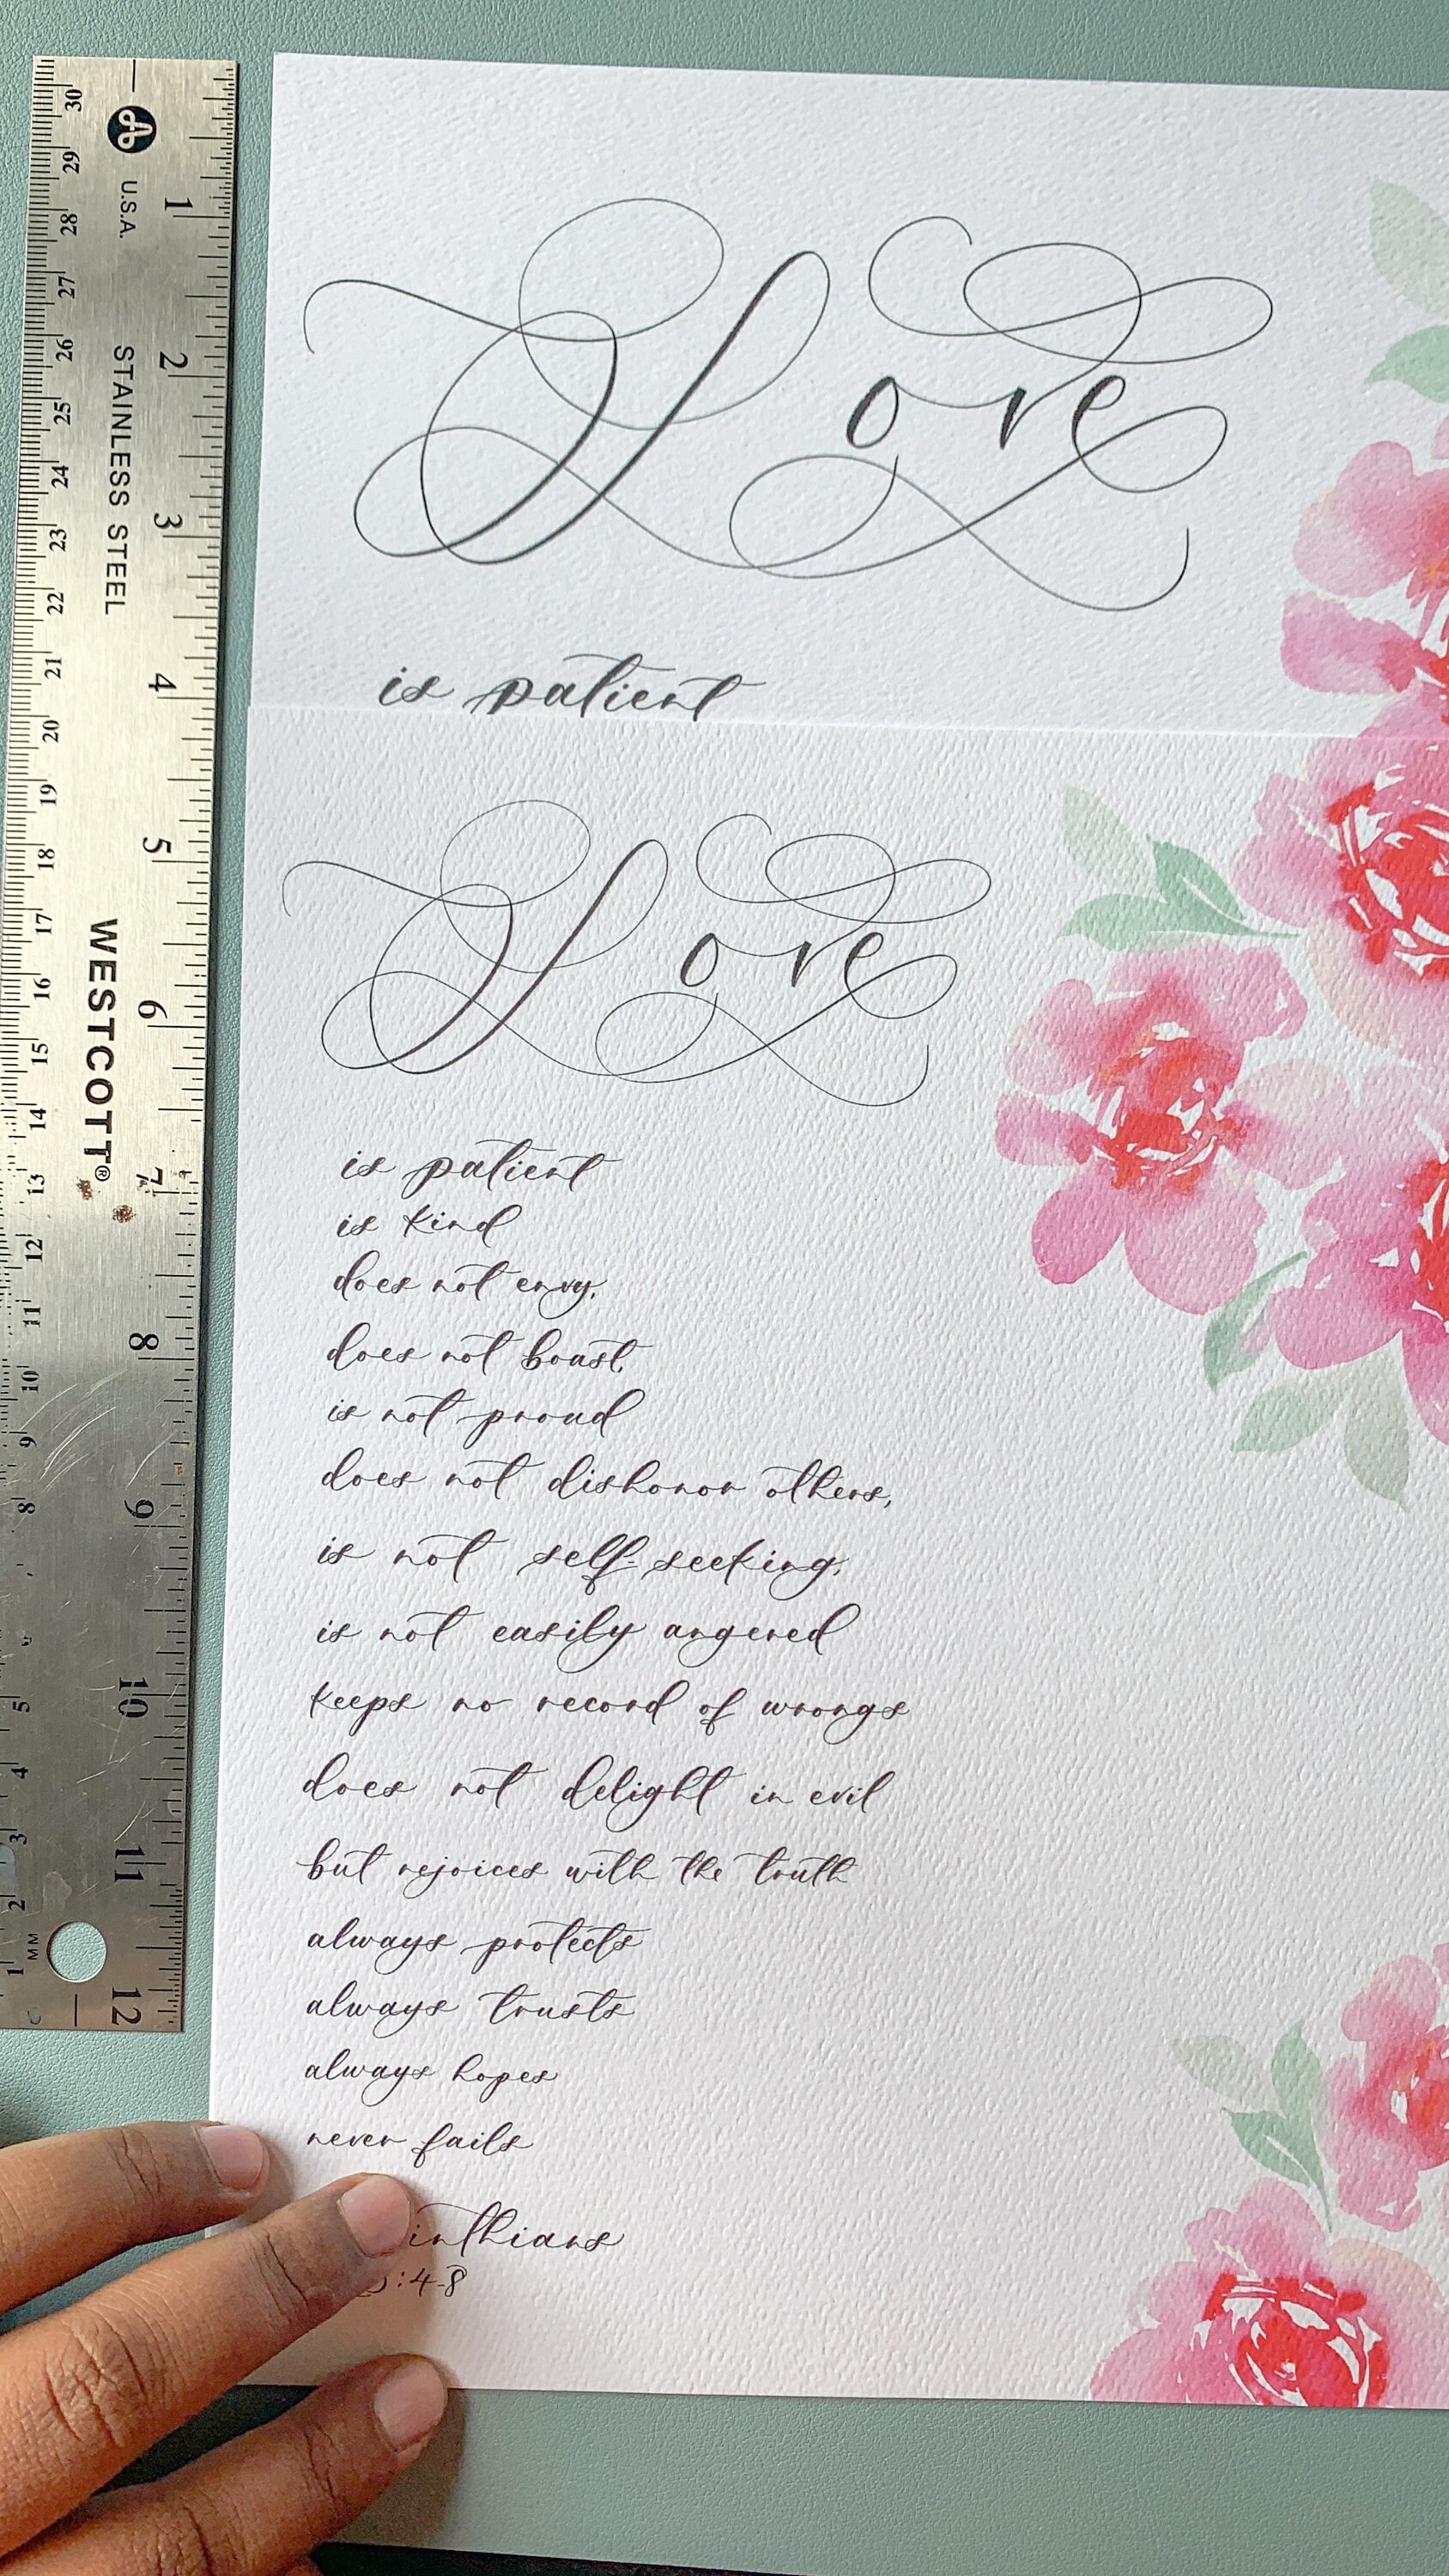 Love
is patient
Love
is patient
is kind
does not envy,
does not boast,
is not proud
does not dishonor others,
is not self-seeking,
is not easily angered
keeps no record of wrongs
does not delight in evil
but rejoices with the truth
always protects
always trusts
always hopes
never fails
inthians
:4-8
U.S.A.
STAINLESS STEEL
WESTCOTT®
1 2 3 4 5 6 7 8 9 10 11 12
30 29 28 27 26 25 24 23 22 21 20 19 18 17 16 15 14 13 12 11 10 9 8 5 4 3 2 1
MM